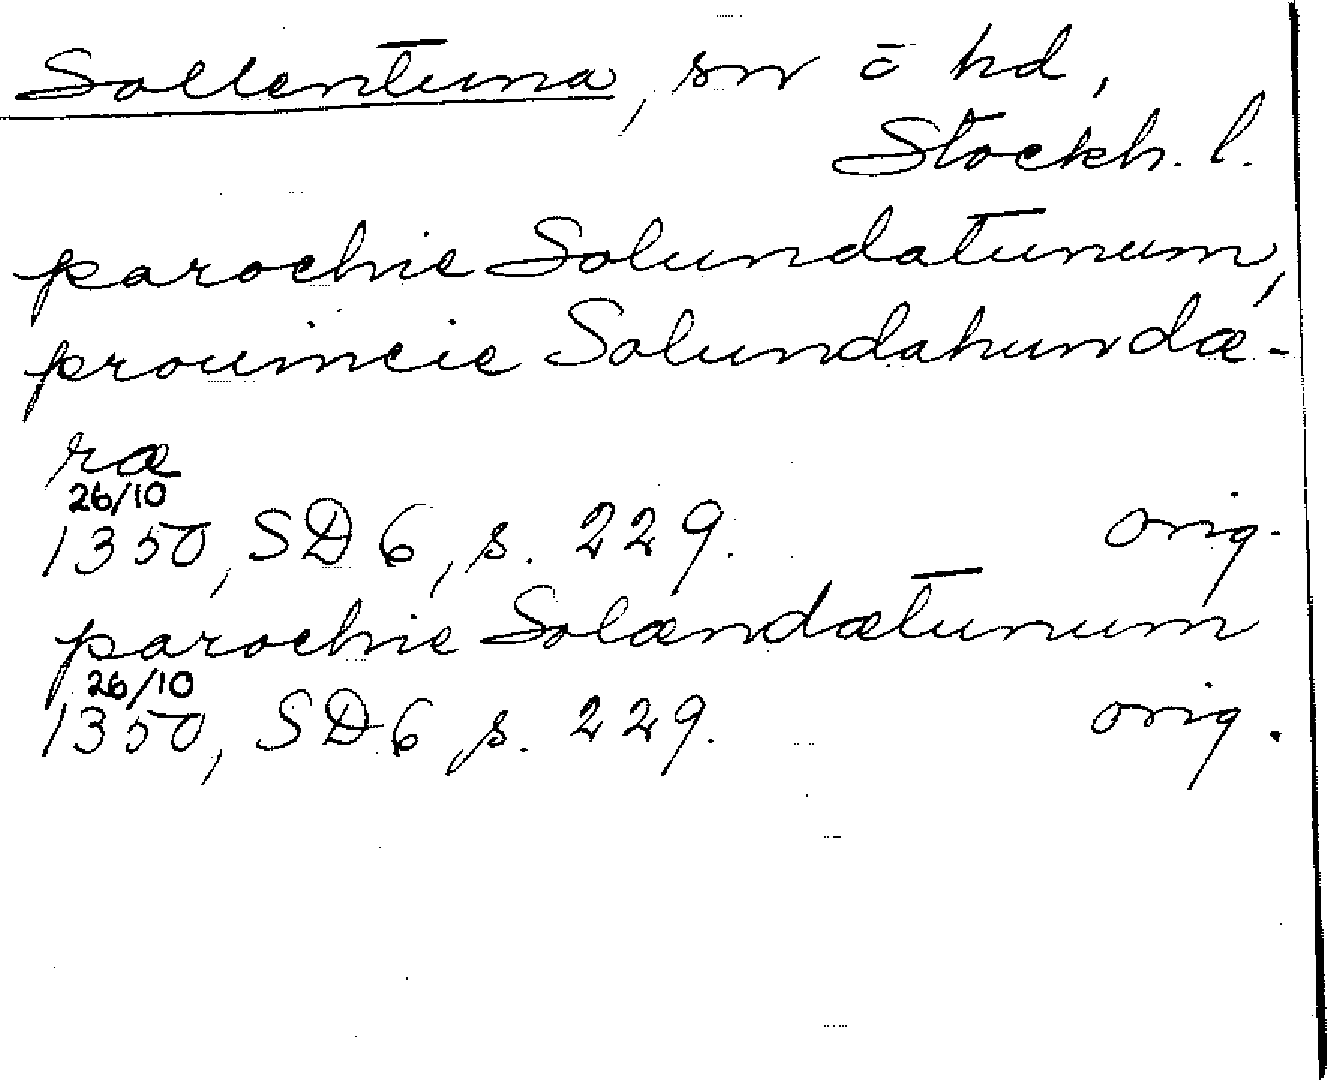 Sollentuna, sn ō hd,
Stockh. l.
parochie Solundatunum,
prouincie Solundahundæ-
ræ
26/10
1350, SD 6, s. 229. orig.
parochie Solændætunum
26/10
1350, SD 6 s. 229. orig.